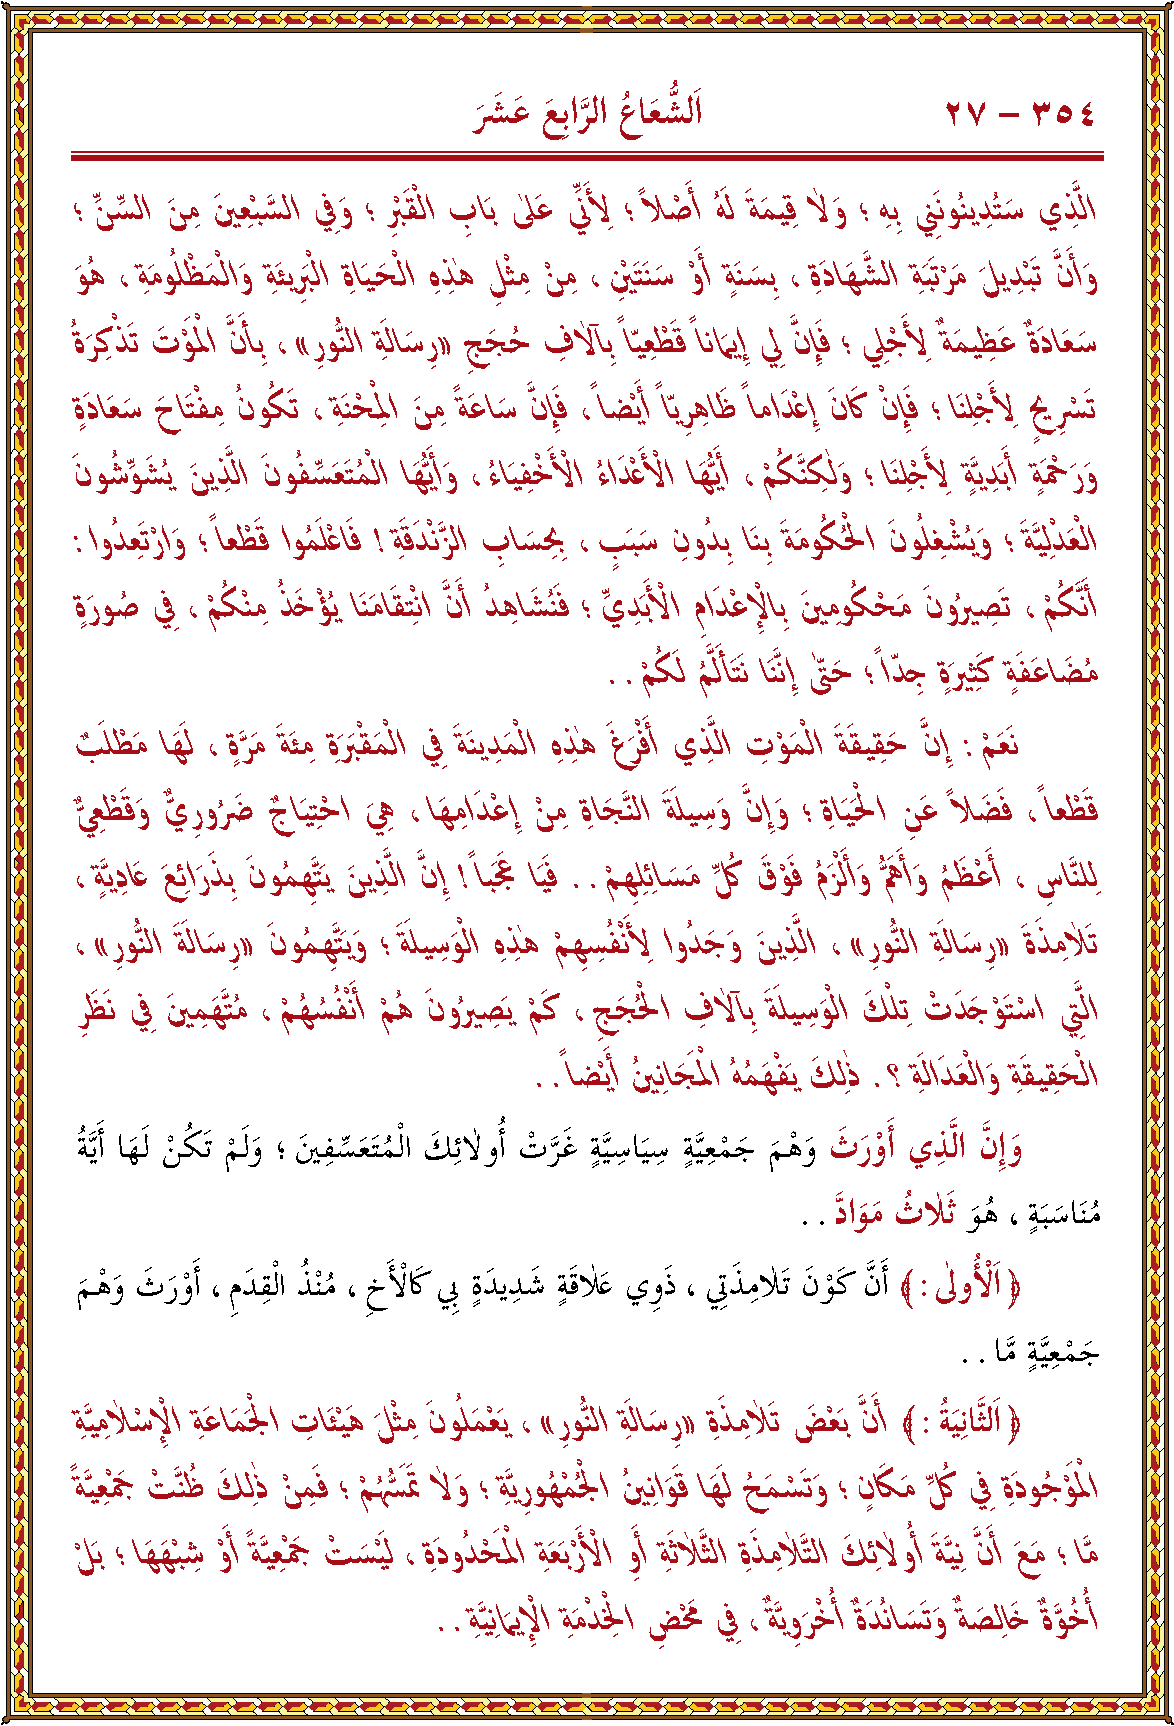 ٣٥٤ – ٢٧ اَلشُّعَاعُ الرَّابِعَ عَشَرَ
الَّذِي سَتُدِينُونَنِي بِهِ ؛ وَلَا قِيمَةَ لَهُ أَصْلاً ؛ لِأَنِّي عَلىٰ بَابِ الْقَبْرِ ؛ وَفِي السَّبْعِينَ مِنَ السِّنِّ ؛
وَأَنَّ تَبْدِيلَ مَرْتَبَةِ الشَّهَادَةِ ، بِسَنَةٍ أَوْ سَنَتَيْنِ ، مِنْ مِثْلِ هٰذِهِ الْحَيَاةِ الْبَرِيئَةِ وَالْمَظْلُومَةِ ، هُوَ
سَعَادَةٌ عَظِيمَةٌ لِأَجْلِي ؛ فَإِنَّ لِي إِيمَاناً قَطْعِيّاً بِآلَافِ حُجَجِ «رِسَالَةِ النُّورِ» ، بِأَنَّ الْمَوْتَ تَذْكِرَةُ
تَسْرِيحٍ لِأَجْلِنَا ؛ فَإِنْ كَانَ إِعْدَاماً ظَاهِرِيّاً أَيْضاً ، فَإِنَّ سَاعَةً مِنَ الْمِحْنَةِ ، تَكُونُ مِفْتَاحَ سَعَادَةٍ
وَرَحْمَةٍ أَبَدِيَّةٍ لِأَجْلِنَا ؛ وَلٰكِنَّكُمْ ، أَيُّهَا الْأَعْدَاءُ الْأَخْفِيَاءُ ، وَأَيُّهَا الْمُتَعَسِّفُونَ الَّذِينَ يُشَوِّشُونَ
الْعَدْلِيَّةَ ؛ وَيُشْغِلُونَ الْحُكُومَةَ بِنَا بِدُونِ سَبَبٍ ، بِحِسَابِ الزَّنْدَقَةِ ! فَاعْلَمُوا قَطْعاً ؛ وَارْتَعِدُوا :
أَنَّكُمْ ، تَصِيرُونَ مَحْكُومِينَ بِالْإِعْدَامِ الْأَبَدِيِّ ؛ فَنُشَاهِدُ أَنَّ انْتِقَامَنَا يُؤْخَذُ مِنْكُمْ ، فِي صُورَةٍ
مُضَاعَفَةٍ كَثِيرَةٍ جِدّاً ؛ حَتّىٰ إِنَّنَا نَتَأَلَّمُ لَكُمْ . .
نَعَمْ : إِنَّ حَقِيقَةَ الْمَوْتِ الَّذِي أَفْرَغَ هٰذِهِ الْمَدِينَةَ فِي الْمَقْبَرَةِ مِئَةَ مَرَّةٍ ، لَهَا مَطْلَبٌ
قَطْعاً ، فَضَلاً عَنِ الْحَيَاةِ ؛ وَإِنَّ وَسِيلَةَ النَّجَاةِ مِنْ إِعْدَامِهَا ، هِيَ احْتِيَاجٌ ضَرُورِيٌّ وَقَطْعِيٌّ
لِلنَّاسِ ، أَعْظَمُ وَأَهَمُّ وَأَلْزَمُ فَوْقَ كُلِّ مَسَائِلِهِمْ . . فَيَا عَجَباً ! إِنَّ الَّذِينَ يَتَّهِمُونَ بِذَرَائِعَ عَادِيَّةٍ ،
تَلَامِذَةَ «رِسَالَةِ النُّورِ» ، الَّذِينَ وَجَدُوا لِأَنْفُسِهِمْ هٰذِهِ الْوَسِيلَةَ ؛ وَيَتَّهِمُونَ «رِسَالَةَ النُّورِ» ،
الَّتِي اسْتَوْجَدَتْ تِلْكَ الْوَسِيلَةَ بِآلَافِ الْحُجَجِ ، كَمْ يَصِيرُونَ هُمْ أَنْفُسُهُمْ ، مُتَّهَمِينَ فِي نَظَرِ
الْحَقِيقَةِ وَالْعَدَالَةِ ؟ . ذٰلِكَ يَفْهَمُهُ الْمَجَانِينُ أَيْضاً . .
وَإِنَّ الَّذِي أَوْرَثَ وَهْمَ جَمْعِيَّةٍ سِيَاسِيَّةٍ غَرَّتْ أُولٰئِكَ الْمُتَعَسِّفِينَ ؛ وَلَمْ تَكُنْ لَهَا أَيَّةُ
مُنَاسَبَةٍ ، هُوَ ثَلَاثُ مَوَادَّ . .
﴿ اَلْأُولىٰ : ﴾ أَنَّ كَوْنَ تَلَامِذَتِي ، ذَوِي عَلَاقَةٍ شَدِيدَةٍ بِي كَالْأَخِ ، مُنْذُ الْقِدَمِ ، أَوْرَثَ وَهْمَ
جَمْعِيَّةٍ مَّا . .
﴿ اَلثَّانِيَةُ : ﴾ أَنَّ بَعْضَ تَلَامِذَةِ «رِسَالَةِ النُّورِ» ، يَعْمَلُونَ مِثْلَ هَيْئَاتِ الْجَمَاعَةِ الْإِسْلَامِيَّةِ
الْمَوْجُودَةِ فِي كُلِّ مَكَانٍ ؛ وَتَسْمَحُ لَهَا قَوَانِينُ الْجُمْهُورِيَّةِ ؛ وَلَا تَمَسُّهُمْ ؛ فَمِنْ ذٰلِكَ ظُنَّتْ جَمْعِيَّةً
مَّا ؛ مَعَ أَنَّ نِيَّةَ أُولٰئِكَ التَّلَامِذَةِ الثَّلَاثَةِ أَوِ الْأَرْبَعَةِ الْمَحْدُودَةِ ، لَيْسَتْ جَمْعِيَّةً أَوْ شِبْهَهَا ؛ بَلْ
أُخُوَّةٌ خَالِصَةٌ وَتَسَانُدَةٌ أُخْرَوِيَّةٌ ، فِي مَحْضِ الْخِدْمَةِ الْإِيمَانِيَّةِ . .